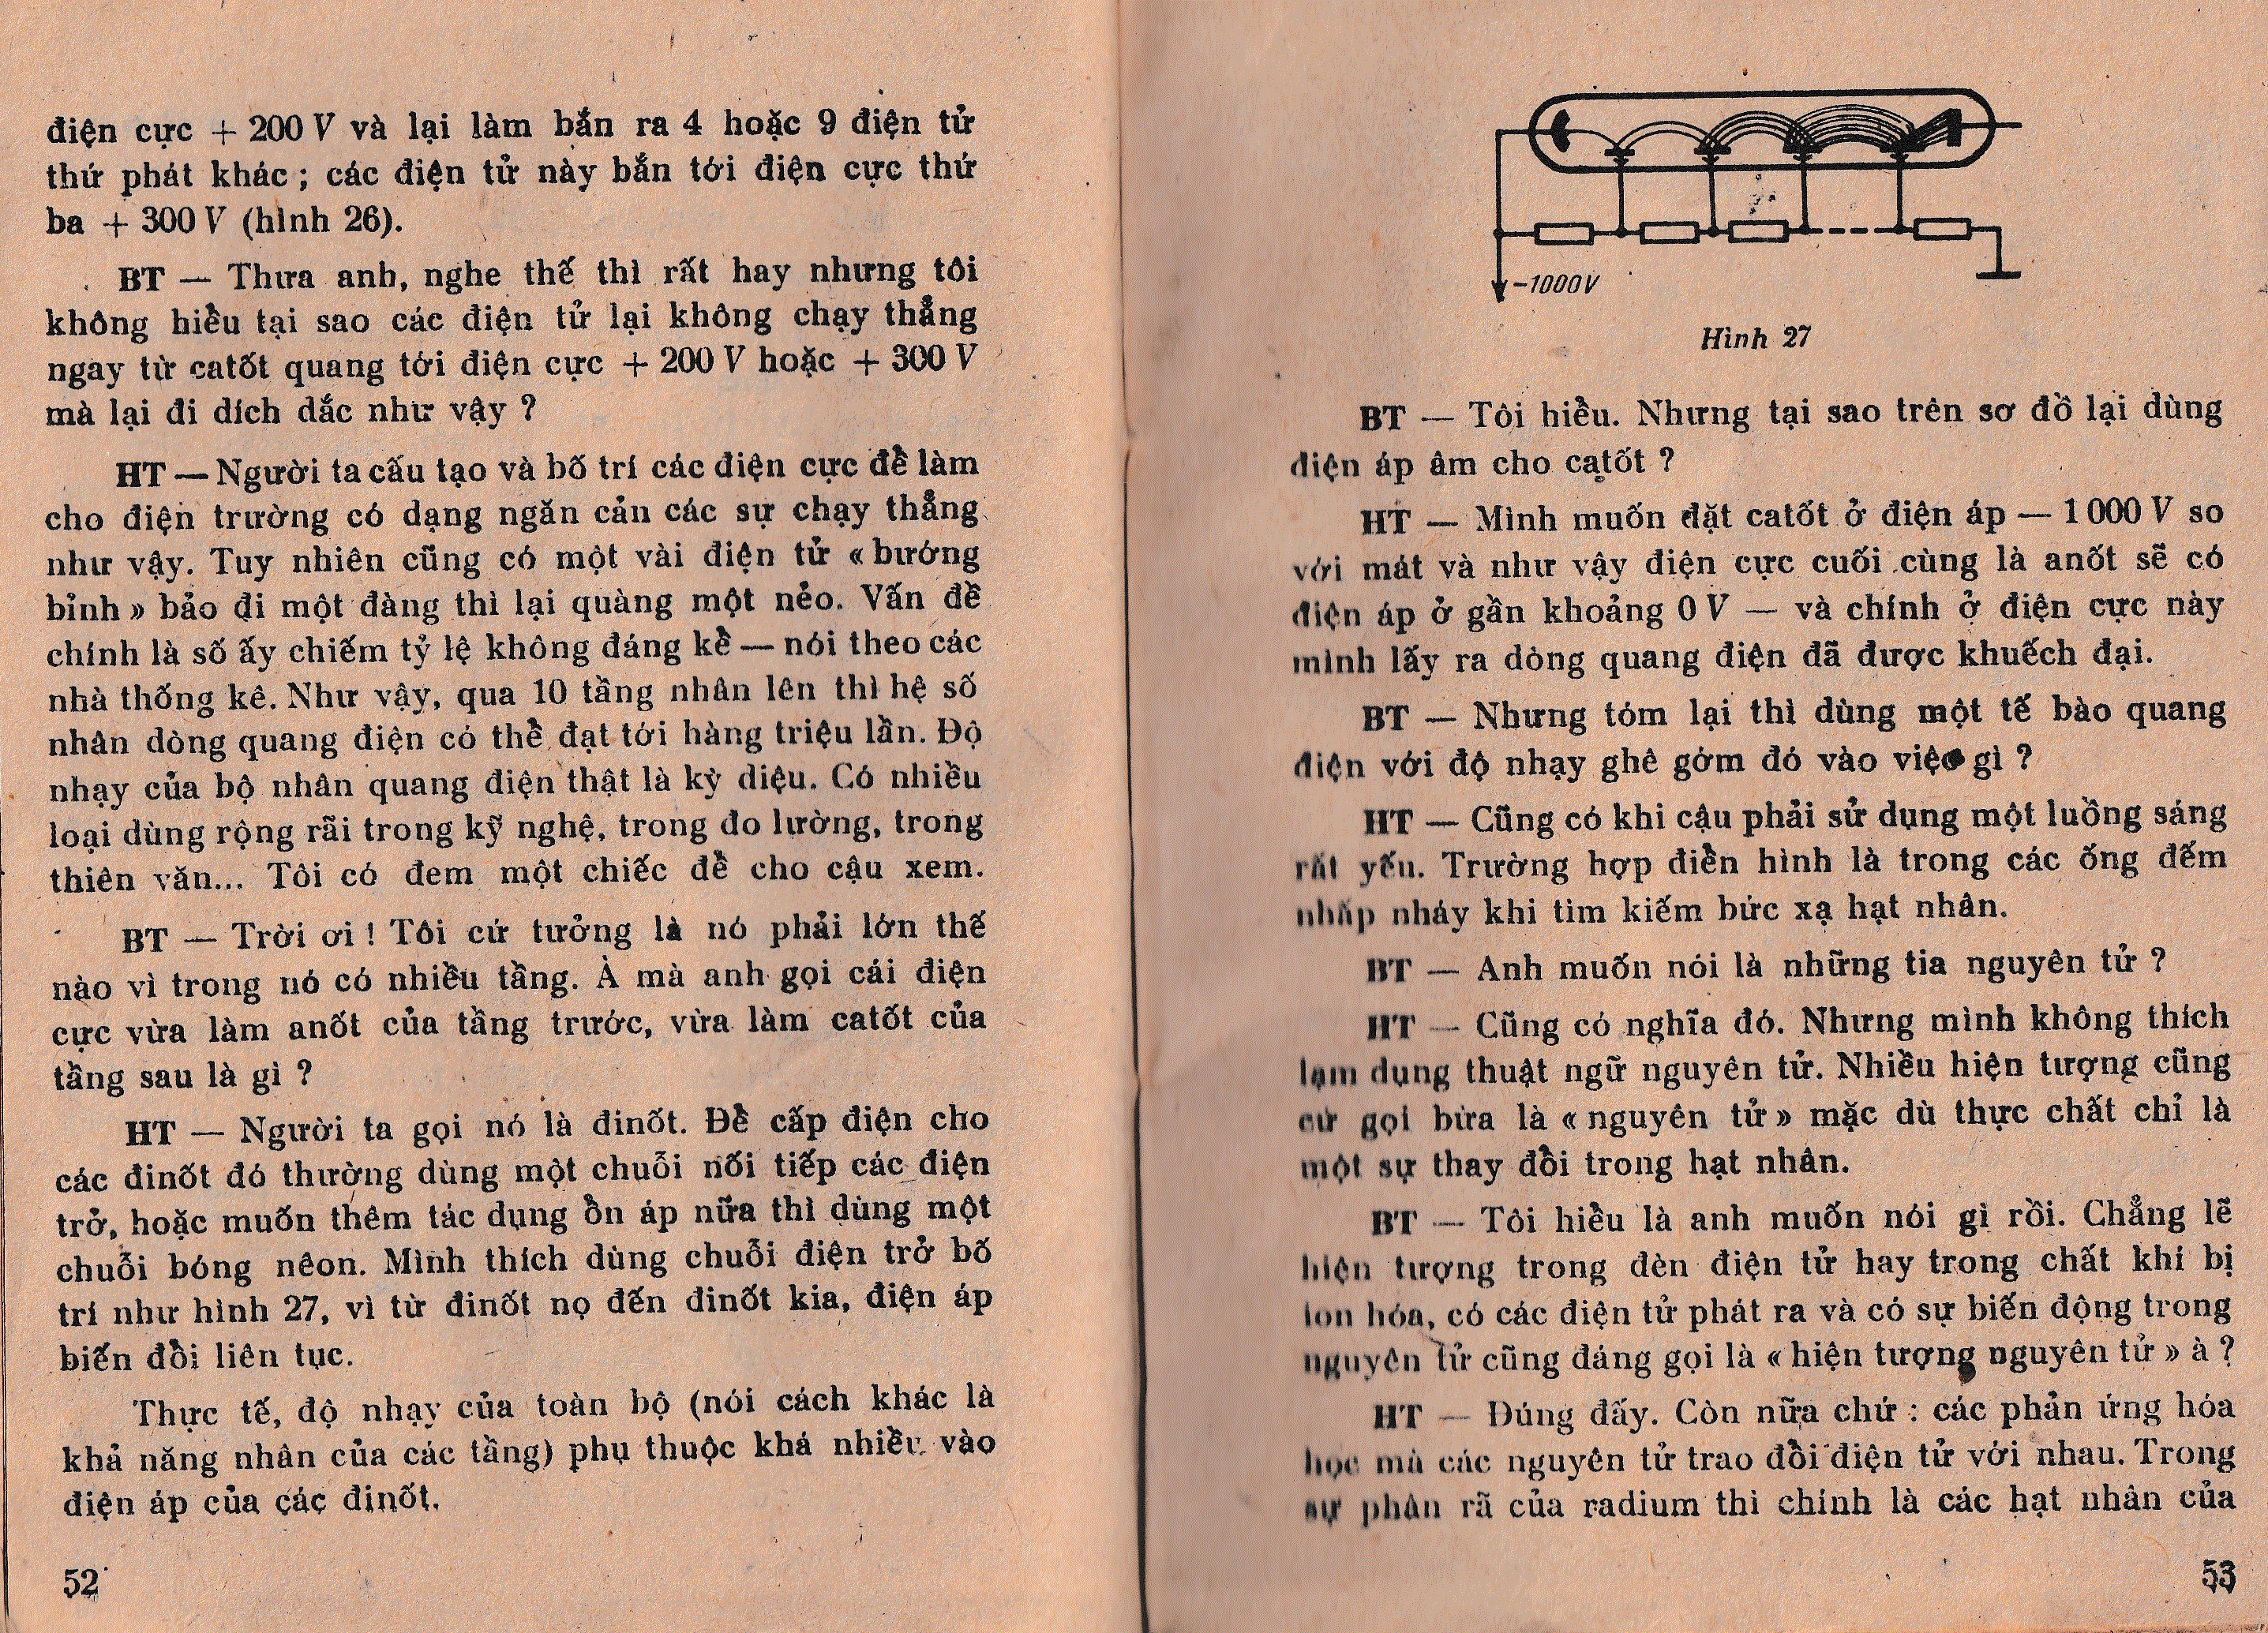 điện cực + 200 V và lại làm bắn ra 4 hoặc 9 điện tử
thứ phát khác ; các điện tử này bắn tới điện cực thứ
ba + 300 V (hình 26).
BT — Thưa anh, nghe thế thì rất hay nhưng tôi
không hiểu tại sao các điện tử lại không chạy thẳng
ngay từ catốt quang tới điện cực + 200 V hoặc + 300 V
mà lại đi dích dắc như vậy ?
HT — Người ta cấu tạo và bố trí các điện cực để làm
cho điện trường có dạng ngăn cản các sự chạy thẳng
như vậy. Tuy nhiên cũng có một vài điện tử « bướng
bỉnh » bảo đi một đàng thì lại quàng một nẻo. Vấn đề
chính là số ấy chiếm tỷ lệ không đáng kể — nói theo các
nhà thống kê. Như vậy, qua 10 tầng nhân lên thì hệ số
nhân dòng quang điện có thể đạt tới hàng triệu lần. Độ
nhạy của bộ nhân quang điện thật là kỳ diệu. Có nhiều
loại dùng rộng rãi trong kỹ nghệ, trong đo lường, trong
thiên văn... Tôi có đem một chiếc để cho cậu xem.
BT — Trời ơi ! Tôi cứ tưởng là nó phải lớn thế
nào vì trong nó có nhiều tầng. À mà anh gọi cái điện
cực vừa làm anốt của tầng trước, vừa làm catốt của
tầng sau là gì ?
HT — Người ta gọi nó là đinốt. Để cấp điện cho
các đinốt đó thường dùng một chuỗi nối tiếp các điện
trở, hoặc muốn thêm tác dụng ổn áp nữa thì dùng một
chuỗi bóng nêon. Mình thích dùng chuỗi điện trở bố
trí như hình 27, vì từ đinốt nọ đến đinốt kia, điện áp
biến đổi liên tục.
Thực tế, độ nhạy của toàn bộ (nói cách khác là
khả năng nhân của các tầng) phụ thuộc khá nhiều vào
điện áp của các đinốt.
52
-1000V
Hình 27
BT — Tôi hiểu. Nhưng tại sao trên sơ đồ lại dùng
điện áp âm cho catốt ?
HT — Mình muốn đặt catốt ở điện áp — 1 000 V so
với mát và như vậy điện cực cuối cùng là anốt sẽ có
điện áp ở gần khoảng 0 V — và chính ở điện cực này
mình lấy ra dòng quang điện đã được khuếch đại.
BT — Nhưng tóm lại thì dùng một tế bào quang
điện với độ nhạy ghê gớm đó vào việc gì ?
HT — Cũng có khi cậu phải sử dụng một luồng sáng
rất yếu. Trường hợp điển hình là trong các ống đếm
nhấp nháy khi tìm kiếm bức xạ hạt nhân.
BT — Anh muốn nói là những tia nguyên tử ?
HT — Cũng có nghĩa đó. Nhưng mình không thích
lạm dụng thuật ngữ nguyên tử. Nhiều hiện tượng cũng
cứ gọi bừa là « nguyên tử » mặc dù thực chất chỉ là
một sự thay đổi trong hạt nhân.
BT — Tôi hiểu là anh muốn nói gì rồi. Chẳng lẽ
hiện tượng trong đèn điện tử hay trong chất khí bị
ion hóa, có các điện tử phát ra và có sự biến động trong
nguyên tử cũng đáng gọi là « hiện tượng nguyên tử » à ?
HT — Đúng đấy. Còn nữa chứ : các phản ứng hóa
học mà các nguyên tử trao đổi điện tử với nhau. Trong
sự phân rã của radium thì chính là các hạt nhân của
53